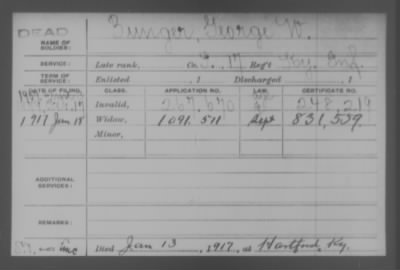 DEAD
NAME OF SOLDIER: Bunger, George W.
SERVICE: Late rank, Co. 17 Reg't Ky. Inf.
TERM OF SERVICE: Enlisted , 1 Discharged , 1
DATE OF FILING. CLASS. APPLICATION NO. LAW. CERTIFICATE NO.
Invalid, 267,670 248,219
1917 Jan 18 Widow, 1091,511 Sept 831,539
Minor,
ADDITIONAL SERVICES:
REMARKS:
Died Jan 13, 1917, at Hartford, Ky.